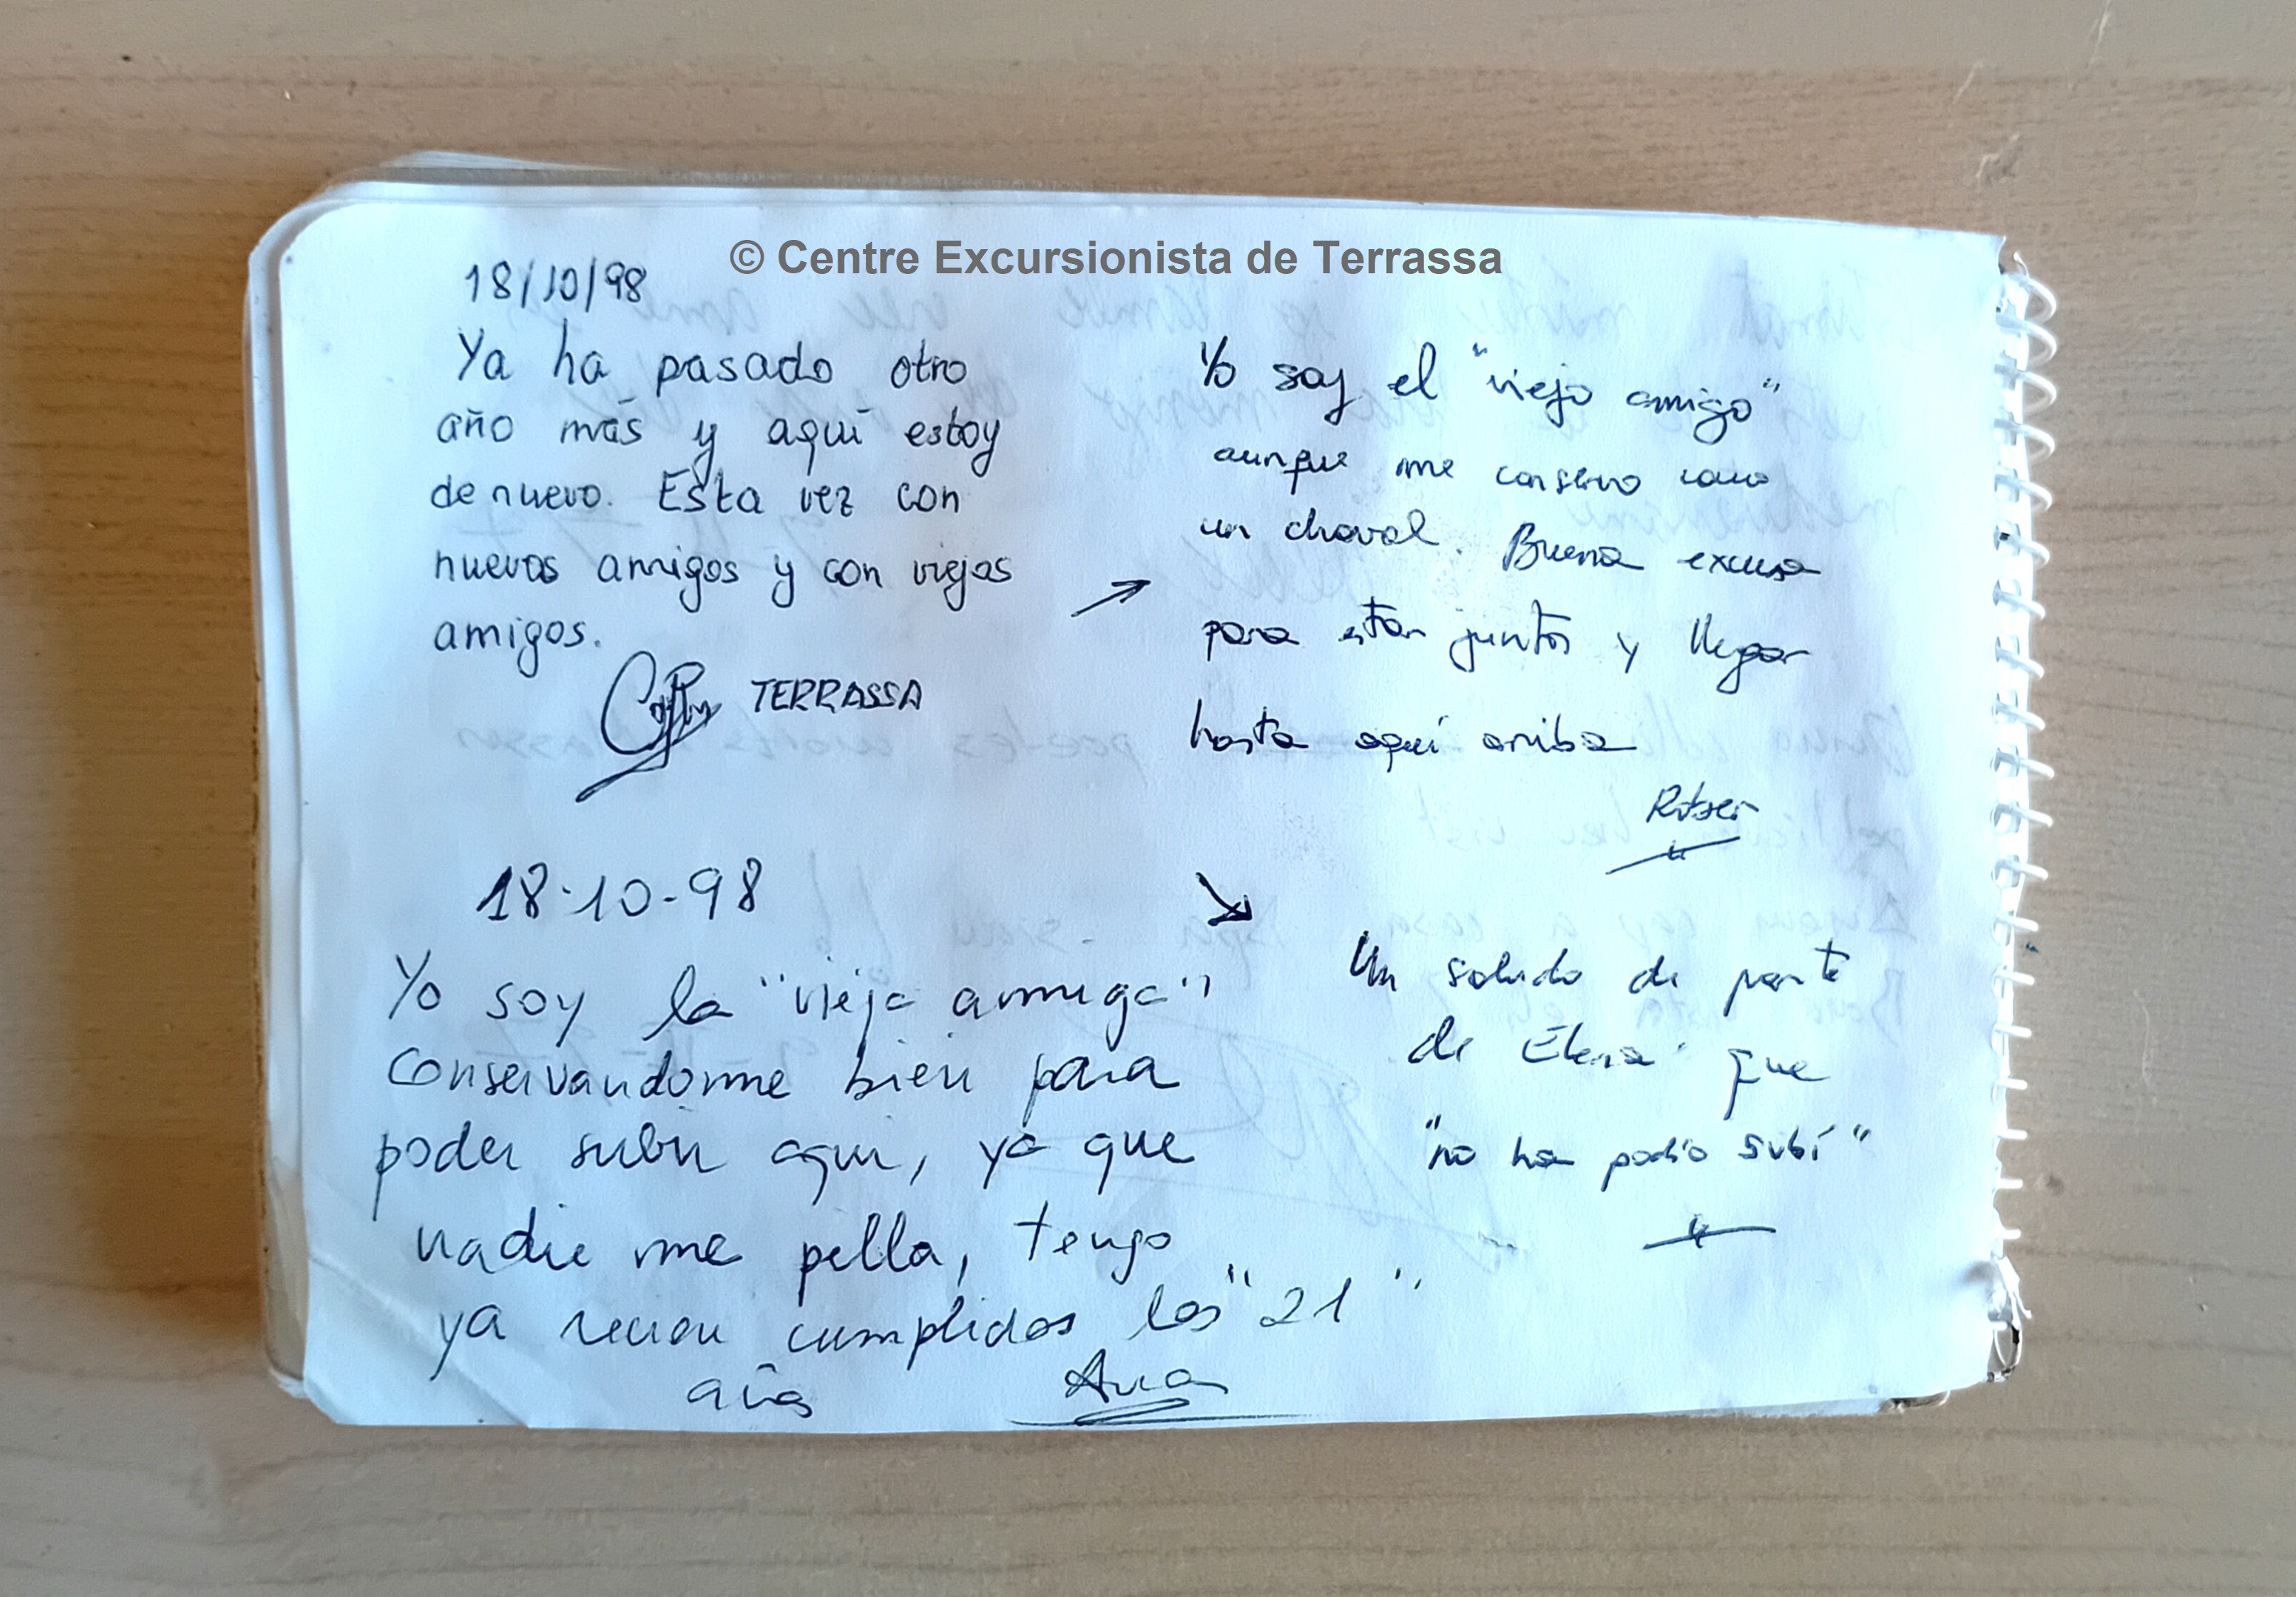 © Centre Excursionista de Terrassa
18/10/98
Ya ha pasado otro
año más y aquí estoy
de nuevo. Esta vez con
nuevos amigos y con viejos
amigos.
TERRASSA
Yo soy el "viejo amigo"
aunque me conservo como
un chaval. Buena excusa
para estar juntos y llegar
hasta aquí arriba
18-10-98
Yo soy la "vieja amiga"
conservandome bien para
poder subir aqui, ya que
nadie me pilla, tengo
ya recien cumplidos los "21"
años Ana
Un saludo de parte
de Elena que
"no ha podío subí"